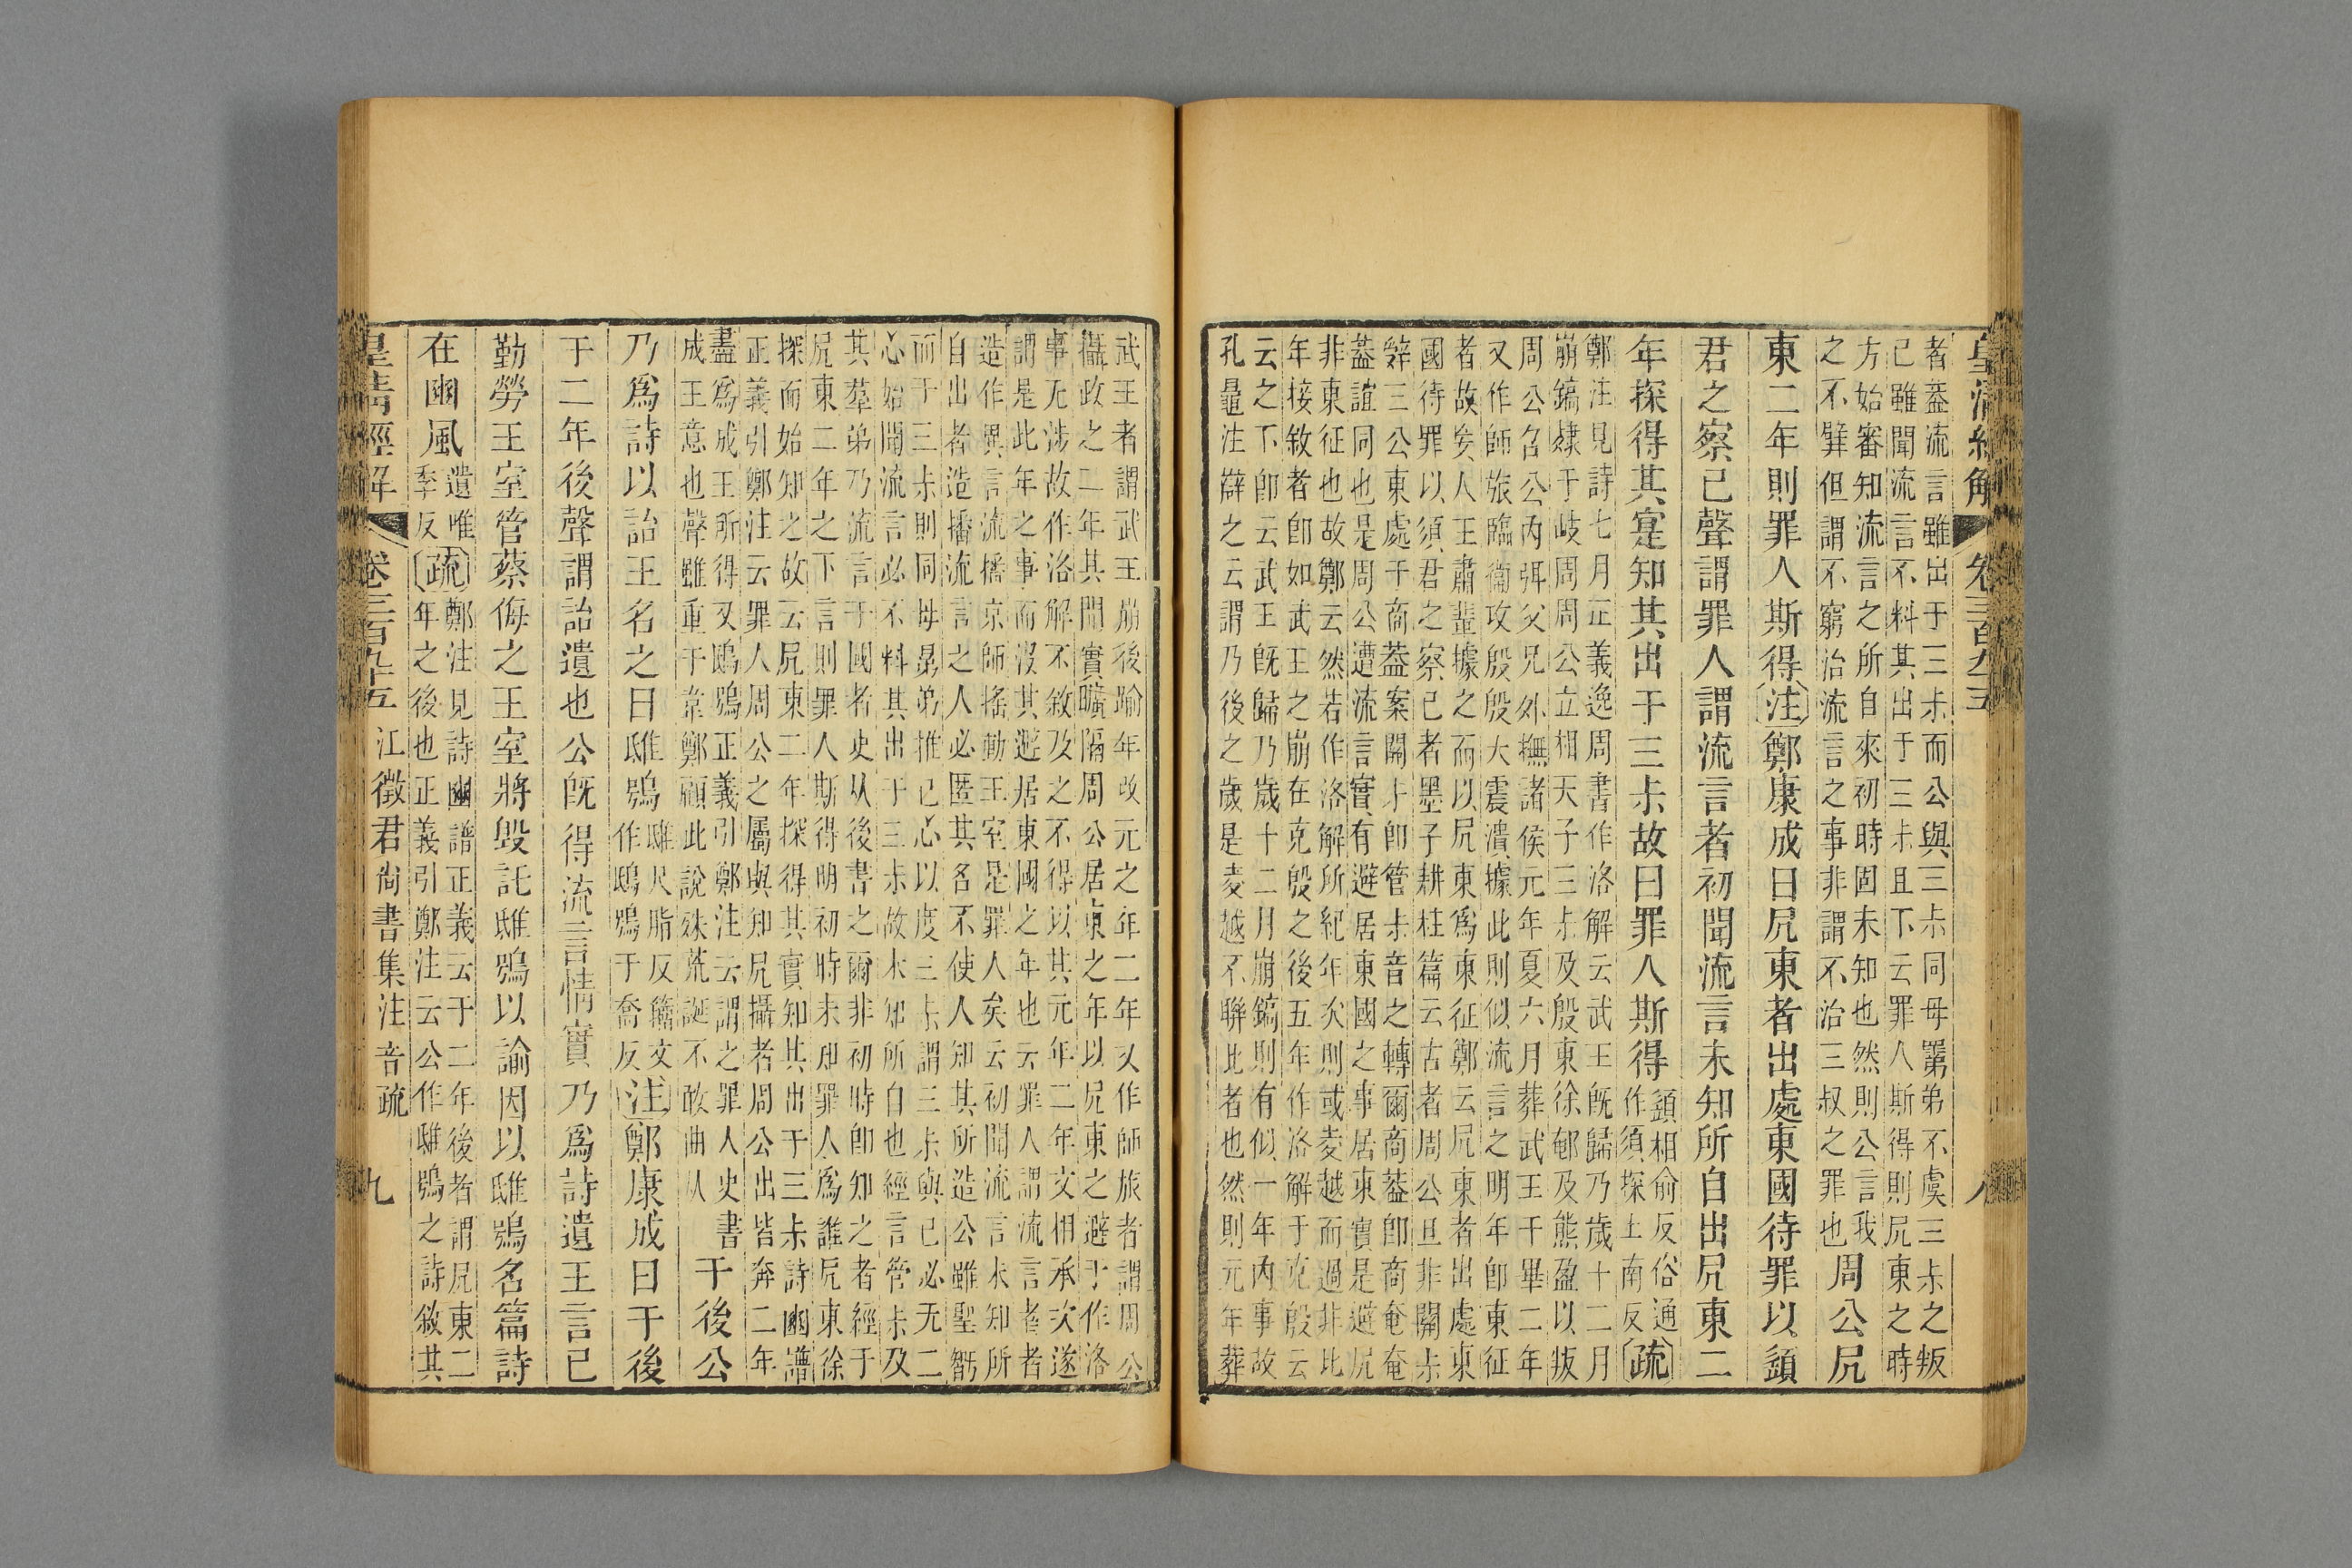 皇清經解 卷三百九十五 八
者葢流言雖出于三尗而公與三尗同母罤弟不虞三尗之叛
已雖聞流言不料其出于三尗且下云罪人斯得則凥東之時
方始審知流言之所自來初時固未知也然則公言我
之不辥但謂不窮治流言之事非謂不治三叔之罪也
周公凥
東二年則罪人斯得注鄭康成曰凥東者出處東國待罪以䇓
君之察已聲謂罪人謂流言者初聞流言未知所自出凥東二
年探得其寔知其出于三尗故曰罪人斯得
䇓相俞反俗通
作須探土南反
疏
鄭注見詩七月正義逸周書作洛解云武王旣歸乃歲十二月
崩鎬肂于岐周周公立相天子三尗及殷東徐郼及熊盈以叛
周公召公内弭父兄外撫諸侯元年夏六月葬武王于畢二年
又作師旅臨衞攻殷殷大震潰據此則似流言之明年卽東征
者故矣人王肅輩據之而以凥東爲東征鄭云凥東者出處東
國待罪以須君之察已者墨子耕柱篇云古者周公旦非關尗
辤三公東處于商葢案關尗卽管尗音之轉爾商葢卽商奄奄
葢誼同也是周公遭流言實有避居東國之事居東實是避凥
非東征也故鄭云然若作洛解所紀年次則或夌越而過非比
年接敘者卽如武王之崩在克殷之後五年作洛解于克殷云
云之下卽云武王旣歸乃歲十二月崩鎬則有似一年内事故
孔鼂注辥之云謂乃後之歲是夌越不聯比者也然則元年葬
武王者謂武王崩後踰年改元之年二年又作師旅者謂周公
攝政之二年其閒實曠隔周公居東之年以凥東之避于作洛
事无涉故作洛解不敘及之不得以其元年二年文相承次遂
謂是此年之事而沒其避居東國之年也云罪人謂流言者者
造作異言流播京師搖動王室是罪人矣云初聞流言未知所
自出者造播流言之人必匿其名不使人知其所造公雖聖㬱
而于三尗則同母罤弟推已心以度三尗謂三尗與已必无二
心始聞流言必不料其出于三尗故未知所自也經言管尗及
其羣弟乃流言于國者史从後書之爾非初時卽知之者經于
凥東二年之下言則罪人斯得明初時未知罪人爲誰凥東徐
探而始知之故云凥東二年探得其實知其出于三尗詩豳譜
正義引鄭注云罪人周公之屬與知凥攝者周公出皆奔二年
盡爲成王所得又鴟鴞正義引鄭注云謂之罪人史書
成王意也聲雖重于韋鄭顧此說殊荒誕不敢曲从
于後公
乃爲詩以詒王名之曰鴟鴞
鴟尺脂反籒文
作鴟鴞于喬反
注鄭康成曰于後
于二年後聲謂詒遺也公旣得流言情實乃爲詩遺王言已
勤勞王室管蔡侮之王室將毀託鴟鴞以諭因以鴟鴞名篇詩
在豳風
遺唯
季反
疏
鄭注見詩豳譜正義云于二年後者謂凥東二
年之後也正義引鄭注云公作鴟鴞之詩敘其
皇清經解 卷三百九十五 江徵君尙書集注音疏 九